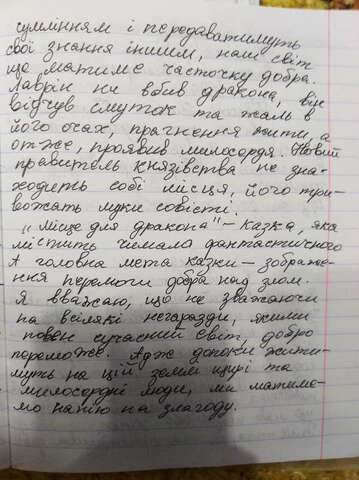 сумлінням і передаватимуть
свої знання іншим, наш світ
ще матиме часточку добра.
Лаврін не вбив дракона, він
відчув смуток та жаль в
його очах, прагнення жити, а
отже, проявив милосердя. Новий
правитель князівства не зна-
ходить собі місця, його три-
вожать муки совісті.
„Місце для дракона" – казка, яка
містить чимало фантастичного
А головна мета казки – зображе-
ння перемоги добра над злом.
Я вважаю, що не зважаючи
на всілякі негаразди, якими
повен сучасний світ, добро
переможе. Адже допоки жити-
муть на цій землі щирі та
милосердні люди, ми матиме-
мо надію на злагоду.